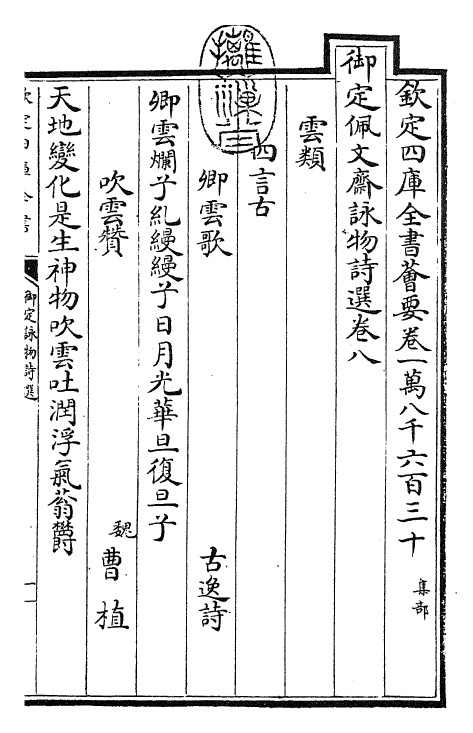 欽定四庫全書薈要卷一萬八千六百三十 集部
御定佩文齋詠物詩選卷八
雲類
四言古
卿雲歌 古逸詩
卿雲爛兮糺縵縵兮日月光華旦復旦兮
吹雲贊 魏 曹植
天地變化是生神物吹雲吐潤浮氣蓊鬱
御定詠物詩選
一
摛藻堂